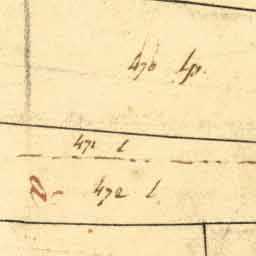 470 lp.
471 l
472 l